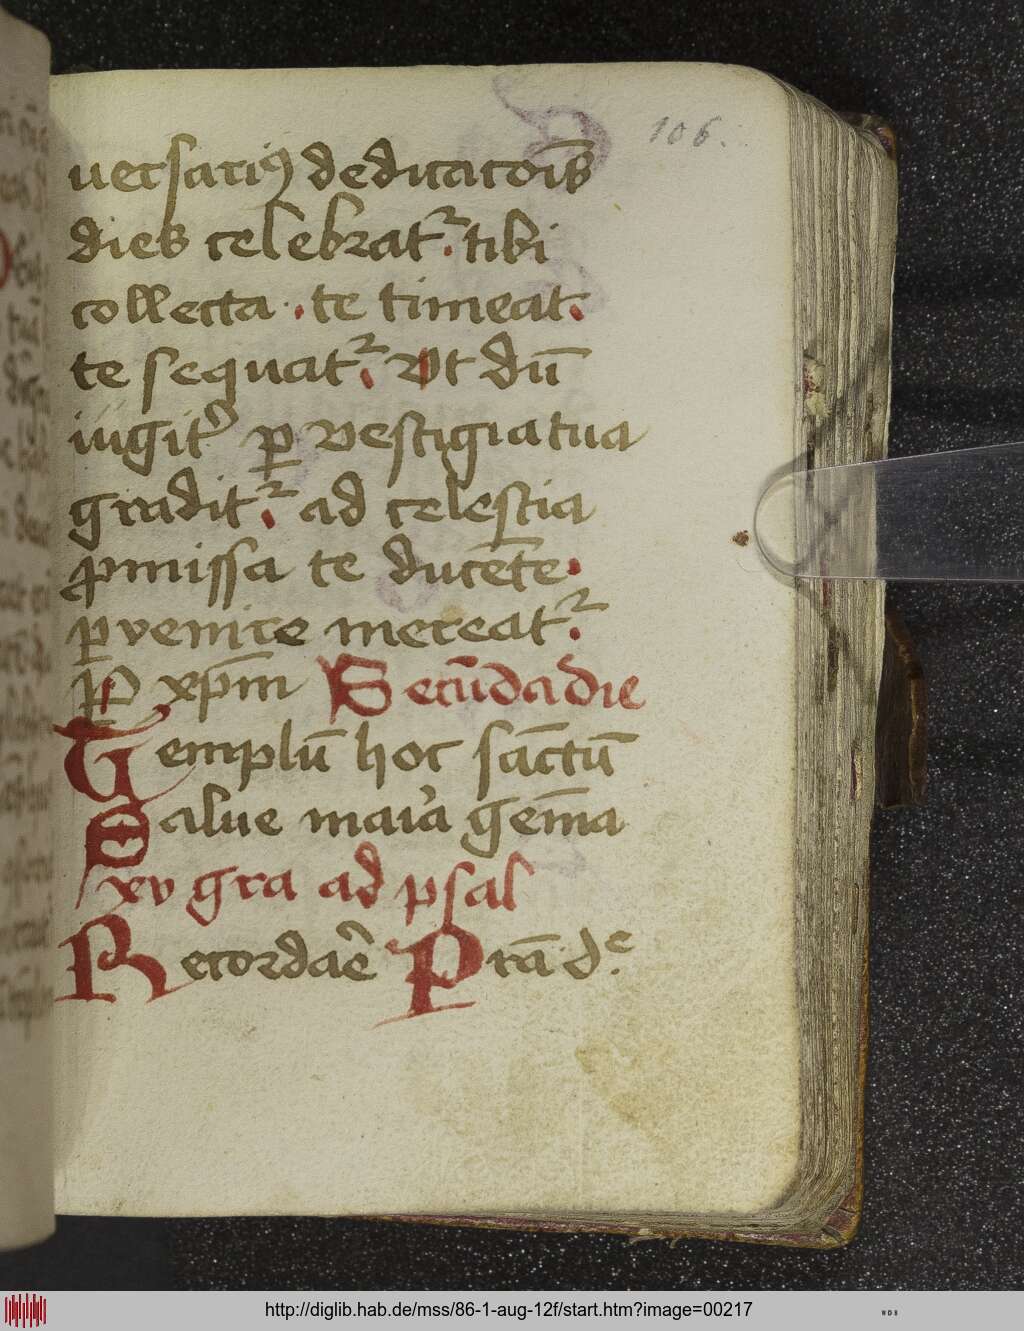 106.
versariꝯ dedicacōis
dies celebrat᷑. tibi
collecta . te timeat.
te sequat᷑. Vt dū
iugit᷑ ꝑ vestigia tua
gradit᷑. ad celestia
ꝓmissa te ducēte.
ꝑvenire mereat᷑.
P xp̄m Secūda die
Templū hoc sāctū
Salue maria gēma
xv gra ad psal
Recordae Prā d.e
http://diglib.hab.de/mss/86-1-aug-12f/start.htm?image=00217